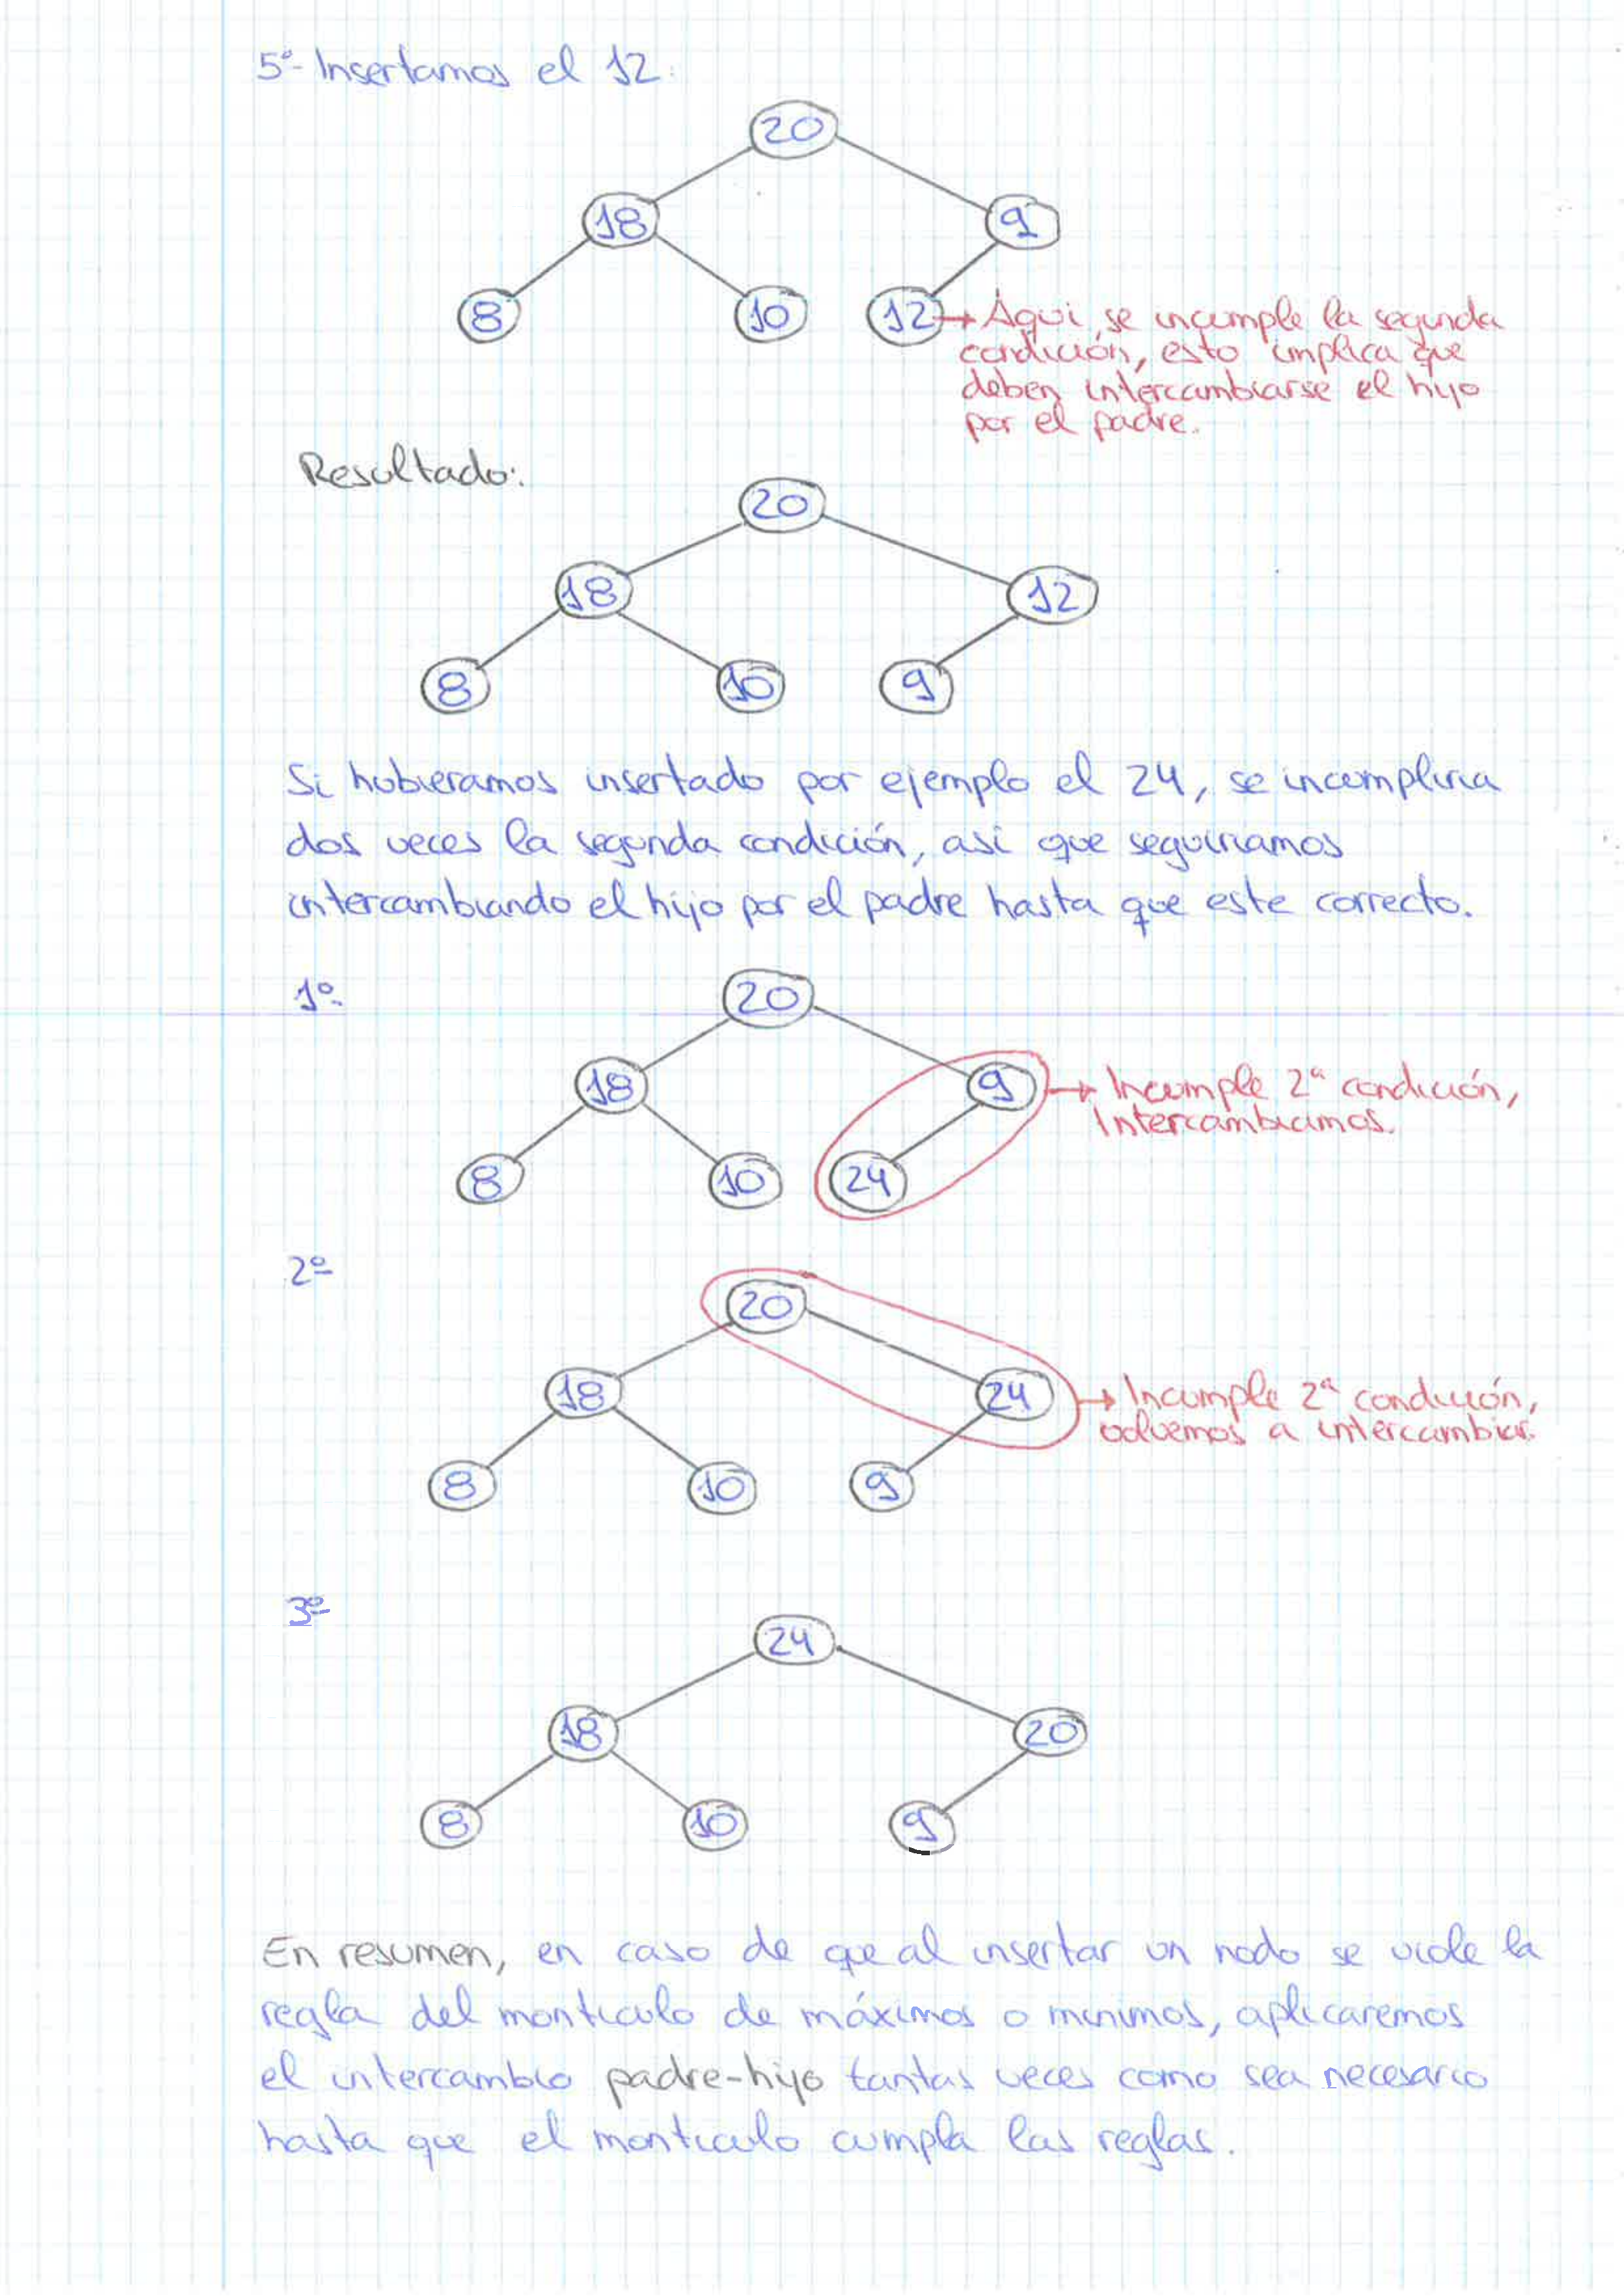 5º- Insertamos el 12:
20
18 9
8 10 12 → Aqui se incumple la segunda
condición, esto implica que
deben intercambiarse el hijo
por el padre.
Resultado:
20
18 12
8 10 9
Si hubieramos insertado por ejemplo el 24, se incumpliria
dos veces la segunda condición, asi que seguiriamos
intercambiando el hijo por el padre hasta que este correcto.
1º-
20
18 9 → Incumple 2ª condición,
Intercambiamos.
8 10 24
2º
20
18 24 → Incumple 2ª condición,
volvemos a intercambiar.
8 10 9
3º
24
18 20
8 10 9
En resumen, en caso de que al insertar un nodo se viole la
regla del monticulo de máximos o minimos, aplicaremos
el intercambio padre-hijo tantas veces como sea necesario
hasta que el monticulo cumpla las reglas.